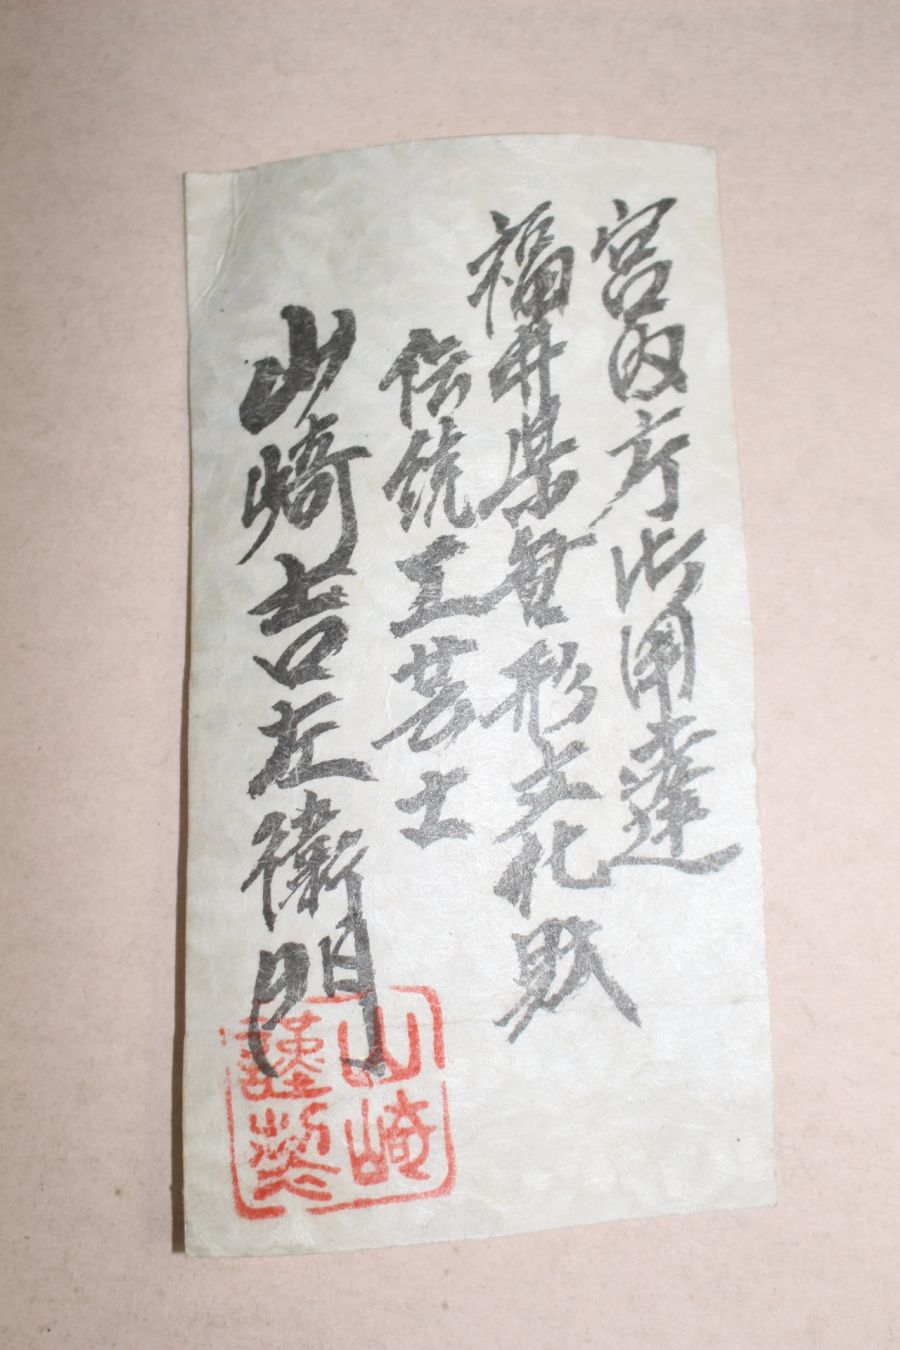 宮内庁御用達
福井県無形文化財
伝統工芸士
山崎吉左衛門
山崎
謹製